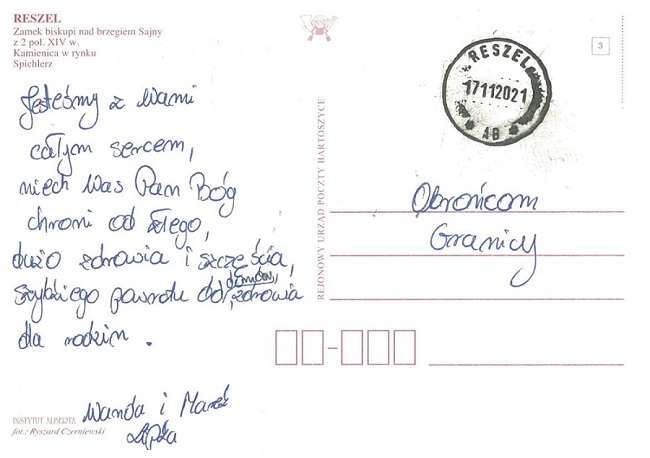 RESZEL
Zamek biskupi nad brzegiem Sajny
z 2 poł. XIV w.
Kamienica w rynku
Spichlerz
Jesteśmy z Wami
całym sercem,
niech Was Pan Bóg
chroni od złego,
dużo zdrowia i szczęścia,
szybkiego powrotu do domów,
zdrowia
dla rodzin.
Wanda i Marek
INSTYTUT ALBERTA
fot.: Ryszard Czerniewski
REJONOWY URZĄD POCZTY BARTOSZYCE
RESZEL
17112021
4B
3
Obrońcom
Granicy